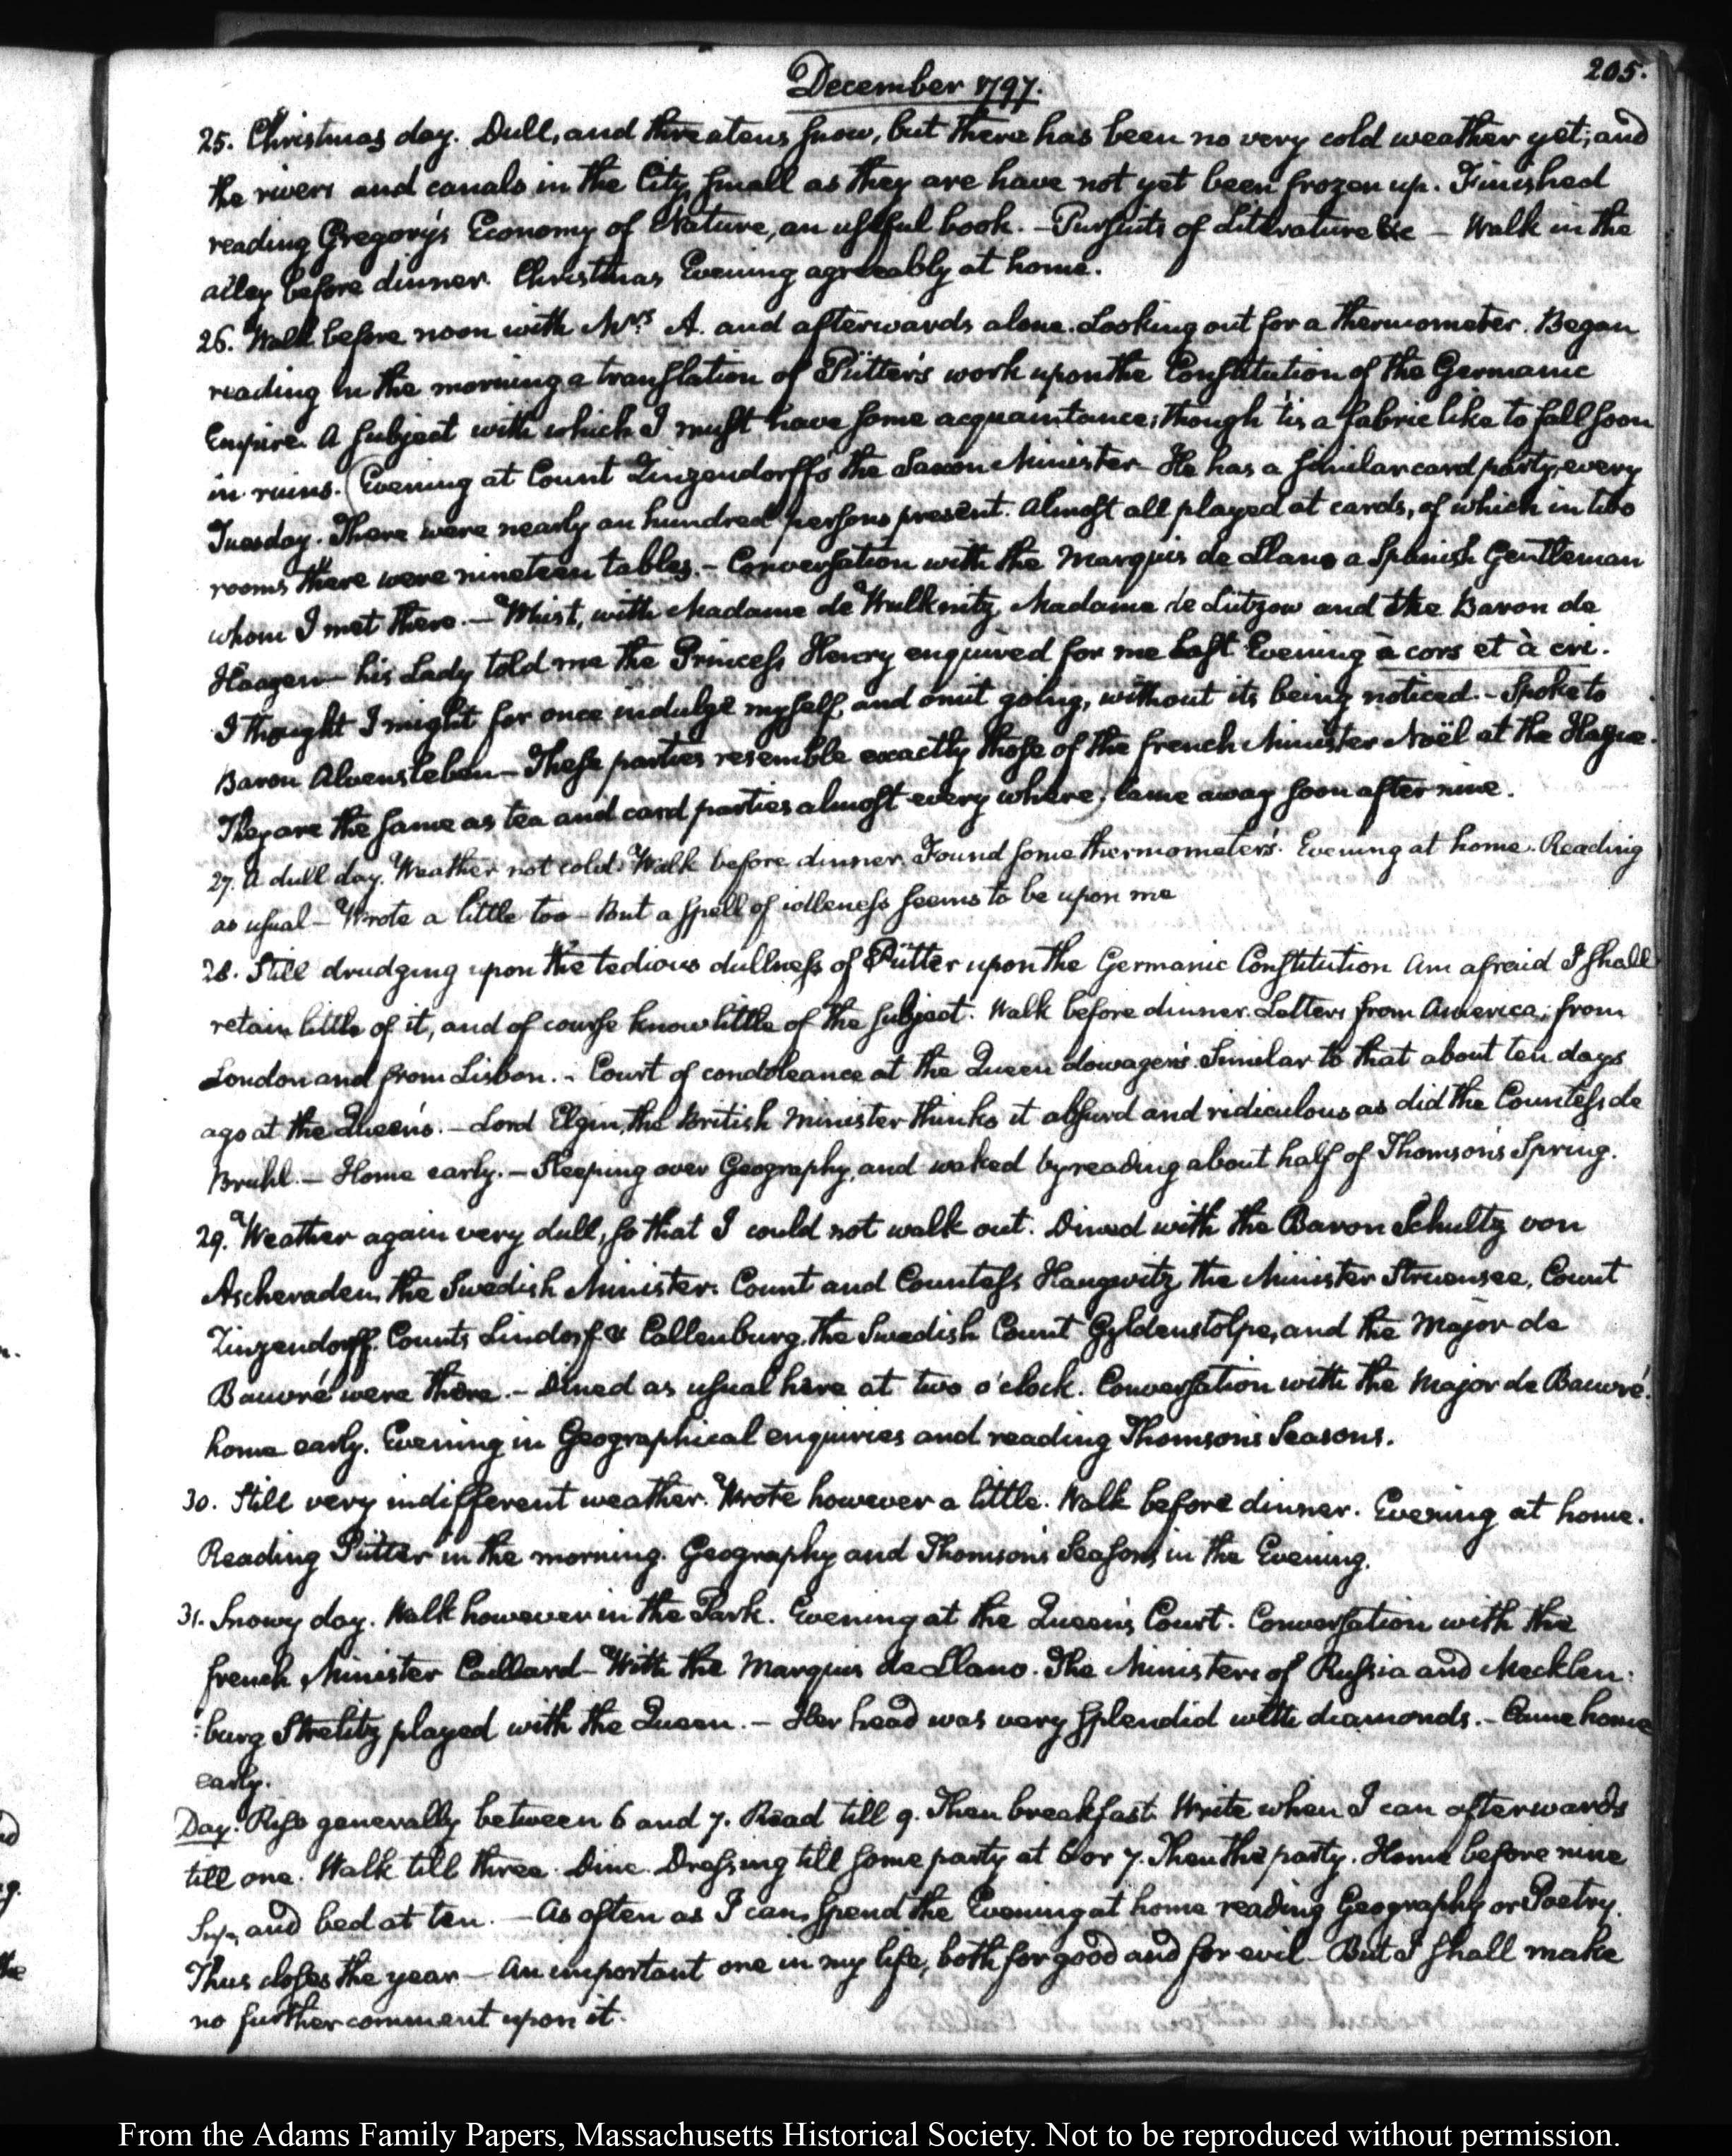 205.
December 1797.
25. Christmas day. Dull, and threatens snow, but there has been no very cold weather yet; and
the rivers and canals in the City, small as they are have not yet been frozen up. Finished
reading Gregory's Economy of Nature, an useful book. - Pursuits of Literature &c - Walk in the
alley before dinner. Christmas Evening agreeably at home.
26. Walk before noon with Mrs. A. and afterwards alone. Looking out for a thermometer. Began
reading in the morning a translation of Pütter's work upon the Constitution of the Germanic
Empire. A subject with which I must have some acquaintance; though 'tis a fabric like to fall soon
in ruins. (Evening at Count Zinzendorff's the Saxon Minister - He has a similar card party, every
Tuesday. There were nearly an hundred persons present. Almost all played at cards, of which in two
rooms there were nineteen tables. - Conversation with the Marquis de Llano a Spanish Gentleman
whom I met there. - Whist, with Madame de Wulknitz, Madame de Lützow and the Baron de
Haagen - his Lady told me the Princess Henry enquired for me last Evening à cors et à cri.
I thought I might for once indulge myself, and omit going, without its being noticed. - Spoke to
Baron Alvensleben - These parties resemble exactly those of the french Minister Noël at the Hague.
They are the same as tea and card parties almost every where.) Came away soon after nine.
27. A dull day. Weather not cold. Walk before dinner. Found some thermometers. Evening at home. Reading
as usual - Wrote a little too - But a spell of idleness seems to be upon me
28. Still drudging upon the tedious dullness of Pütter upon the Germanic Constitution Am afraid I shall
retain little of it, and of course know little of the subject. Walk before dinner. Letters from America; from
London and from Lisbon. - Court of condoleance at the Queen dowager's. Similar to that about ten days
ago at the Queen's. - Lord Elgin, the British Minister thinks it absurd and ridiculous as did the Countess de
Bruhl. - Home early. - Sleeping over Geography, and waked by reading about half of Thomson's Spring.
29. Weather again very dull, so that I could not walk out. Dined with the Baron Schultz von
Ascheraden, the Swedish Minister. Count and Countess Haugwitz, the Minister Struensee, Count
Zinzendorff. Counts Lindorf & Callenburg, the Swedish Count Gyldenstolpe, and the Major de
Bauvré were there. - Dined as usual here at two o'clock. Conversation with the Major de Bauvré.
home early. Evening in Geographical enquiries and reading Thomson's Seasons.
30. Still very indifferent weather. Wrote however a little. Walk before dinner. Evening at home.
Reading Pütter in the morning. Geography and Thomson's Seasons, in the Evening.
31. Snowy day. Walk however in the Park. Evening at the Queen's Court. Conversation with the
french Minister Caillard - With the Marquis de Llano. The Ministers of Russia and Mecklen:
:burg Strelitz played with the Queen. - Her head was very splendid with diamonds. - Came home
early.
Day. Rise generally between 6 and 7. Read till 9. Then breakfast. Write when I can afterwards
till one. Walk till three. Dine. Dressing till some party at 6 or 7. Then the party. Home before nine
Sup, and bed at ten. - As often as I can, spend the Evening at home reading Geography or Poetry.
Thus closes the year - An important one in my life, both for good and for evil - But I shall make
no further comment upon it.
From the Adams Family Papers, Massachusetts Historical Society. Not to be reproduced without permission.